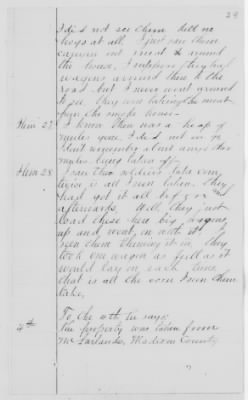 29
I did not see them kill no
hogs at all. I just saw them
carrying out meat & around
the house, I suppose they had
wagons around then to the
road but I never went around
to see. they was taking the meat
from the smoke house.
Item 27. I know there was a heap of
mules gone, I did not in go
dont remember about any of the
mules being taken off.
Item 28. I saw the soldiers take corn,
there is all I seen taken. they
had got it all before and
afterwards. Well, they just
load these here big wagons,
up and went, on with it I
seen them throwing it in, they
took one wagon as full as it
would lay on each time
that is all the corn I seen them
take,
4th To the 4th he says:
The property was taken from
McFarlands, Madison County